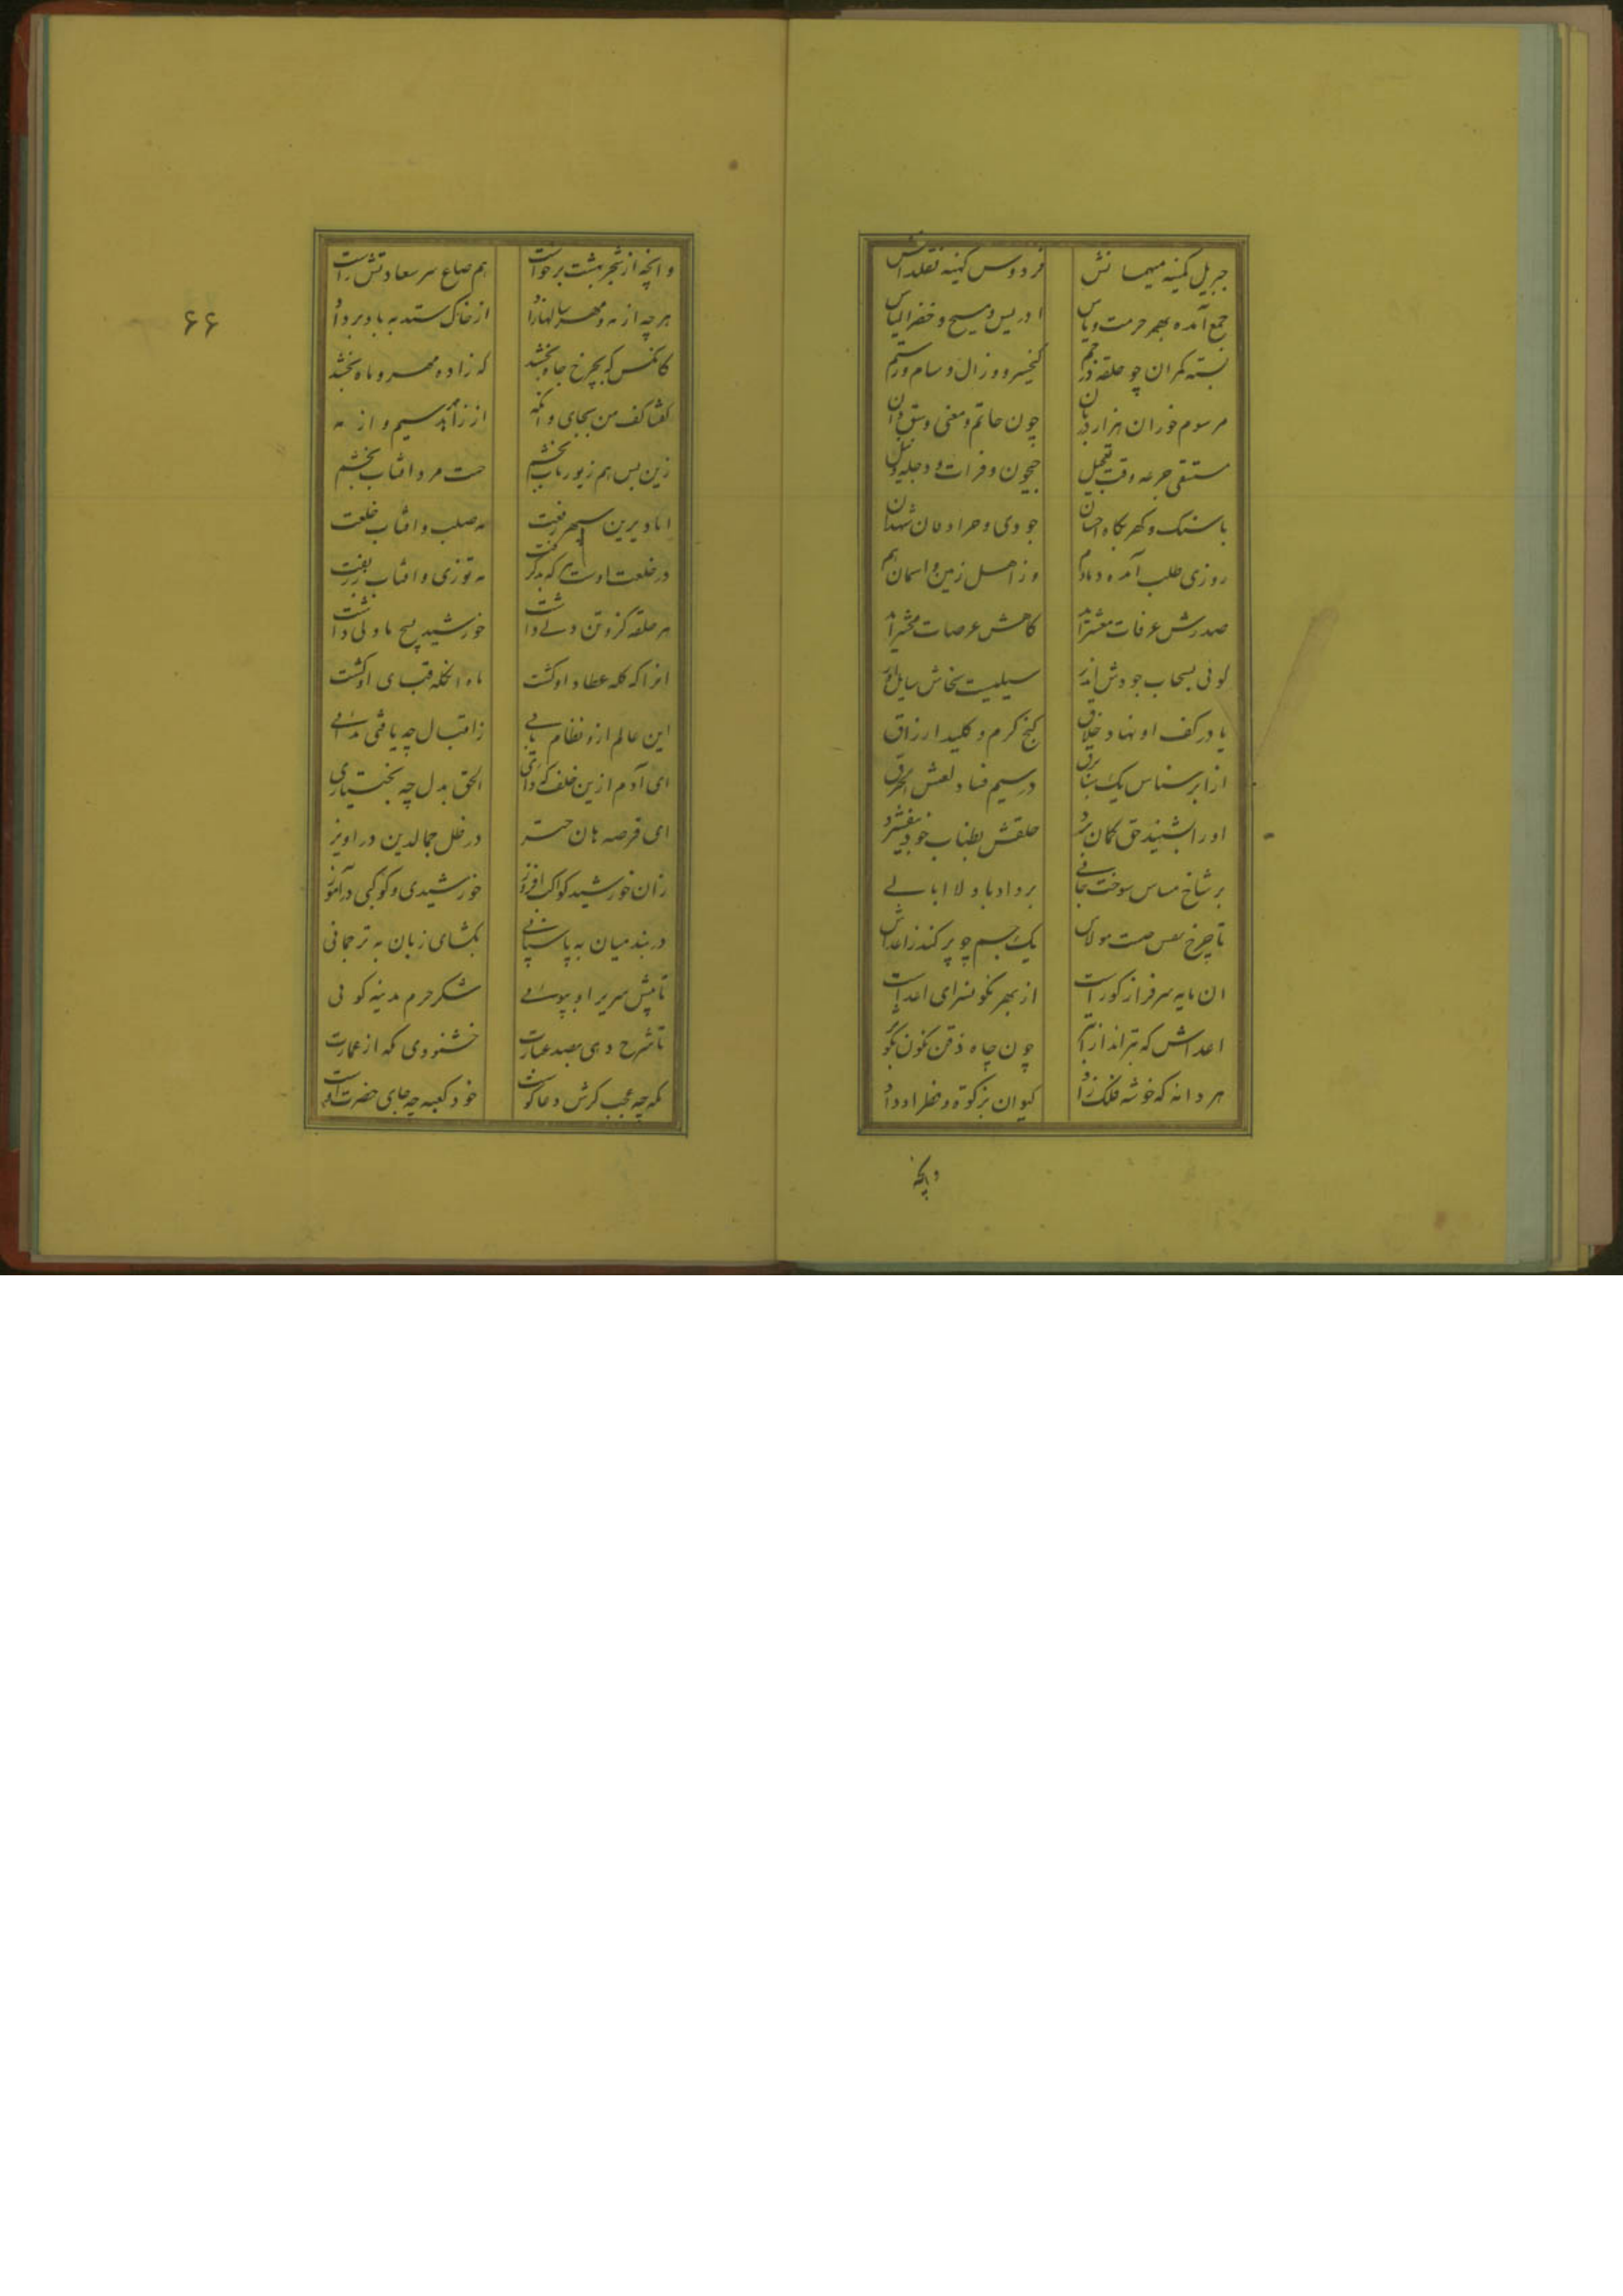 جبریل کمینه میهمانش فردوس کهینه نقلدانش
جمع آمده بهر حرمت و پاس ادریس و مسیح و خضر و الیاس
بسته کمران چو حلقه در هم کیخسرو و زال و سام و رستم
مرسوم خوران هزار دربان چون حاتم و معن و
مستسقی جرعه وقت تعجیل جیحون و فرات و دجله و نیل
با سنک و کهر بکاه احسان جودی و حرا و
روزی طلب آمده دمادم وز اهل زمین و اسمان هم
صدرش عرفات معشر آمد کاهش عرصات محشر آمد
کوئی بسحاب جودش اندر سیلیست سخاش سایل آور
یا در کف او نهاد خلاق کنج کرم و کلید ارزاق
از ابر سناس یک
او را شنید حق کمان برد حلقش بطناب خود بیفشرد
بر شاخ سوخت جانی بر داد باد لا ابالی
تا چرخ مولاش یک جسم چو پر کند ز اعداش
ان مایه سرفراز کوراست از بهر نکونسرای اعداست
اعداش که چون چاه ذقن نکون
هر دانه که خوشه فلک زاد کیوان بزکوة در نظر او داد
وانچه
وانچه از شجر بهشت برخواست هم صاع سر سعادتش راست
هرچه از مه و مهر سالها زاد از خاک ستد به باد بر داد
کانکس که بچرخ جاه بخشد که زاده مهر و ماه بخشد
کفتا کف من بجای وانکه از زاده سیم و از مه
زین پس هم زیور بخشم مرد و افتاب بخشم
اباد برین سپهر رفعت مه صلب و افتاب خلعت
در خلعت اوست که مه توزی و افتاب زربفت
هر حلقه کز و تن و دلی داشت خورشید پنج ماولی داشت
انرا که کله عطا و او کشت ماه انکله قبای او کشت
این عالم ازو نظام یابی ز اقبال چه یافتی بدانی
ای آدم ازین خلف که داری الحق بدل چه بختیاری
ای قرصه هان در ظل جمالدین در اویز
زان خورشید کواکب افروز خورشیدی و کوکبی درآموز
دربند میان به پاسبانی بکشای زبان به ترجمانی
تا پیش سریر او بپوئی شکر حرم مدینه کوئی
تا شرح دهی بصد عبارت خشنودی مکه از عمارت
مکه چه عجب کرش دعاکوست خود کعبه چه جای حضرت اوست
۶۶